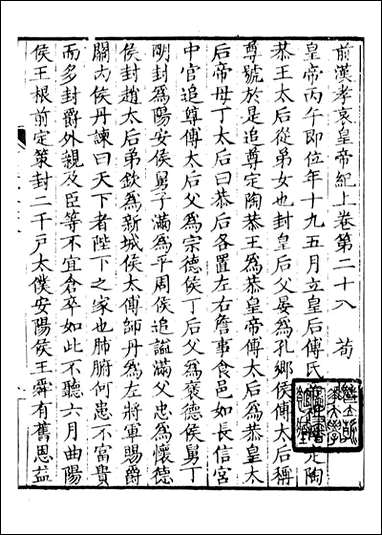 前漢孝哀皇帝紀上卷第二十八　荀
皇帝丙午即位年十九五月立皇后傅氏定陶
恭王太后從弟女也封皇后父晏爲孔鄉侯傅太后稱
尊號於是追尊定陶恭王爲恭皇帝傅太后爲恭皇太
后帝母丁太后曰恭后各置左右詹事食邑如長信宮
中官追尊傅太后父爲宗德侯丁后父爲褒德侯舅丁
明封爲陽安侯舅子滿爲平周侯追謚滿父忠爲懷德
侯封趙太后弟欽爲新城侯太傅師丹爲左將軍賜爵
關內侯丹諫曰天下者陛下之家也肺腑何患不富貴
而多封爵外親及臣等不宜倉卒如此不聽六月曲陽
侯王根前定策封二千戶太僕安陽侯王舜有舊恩益